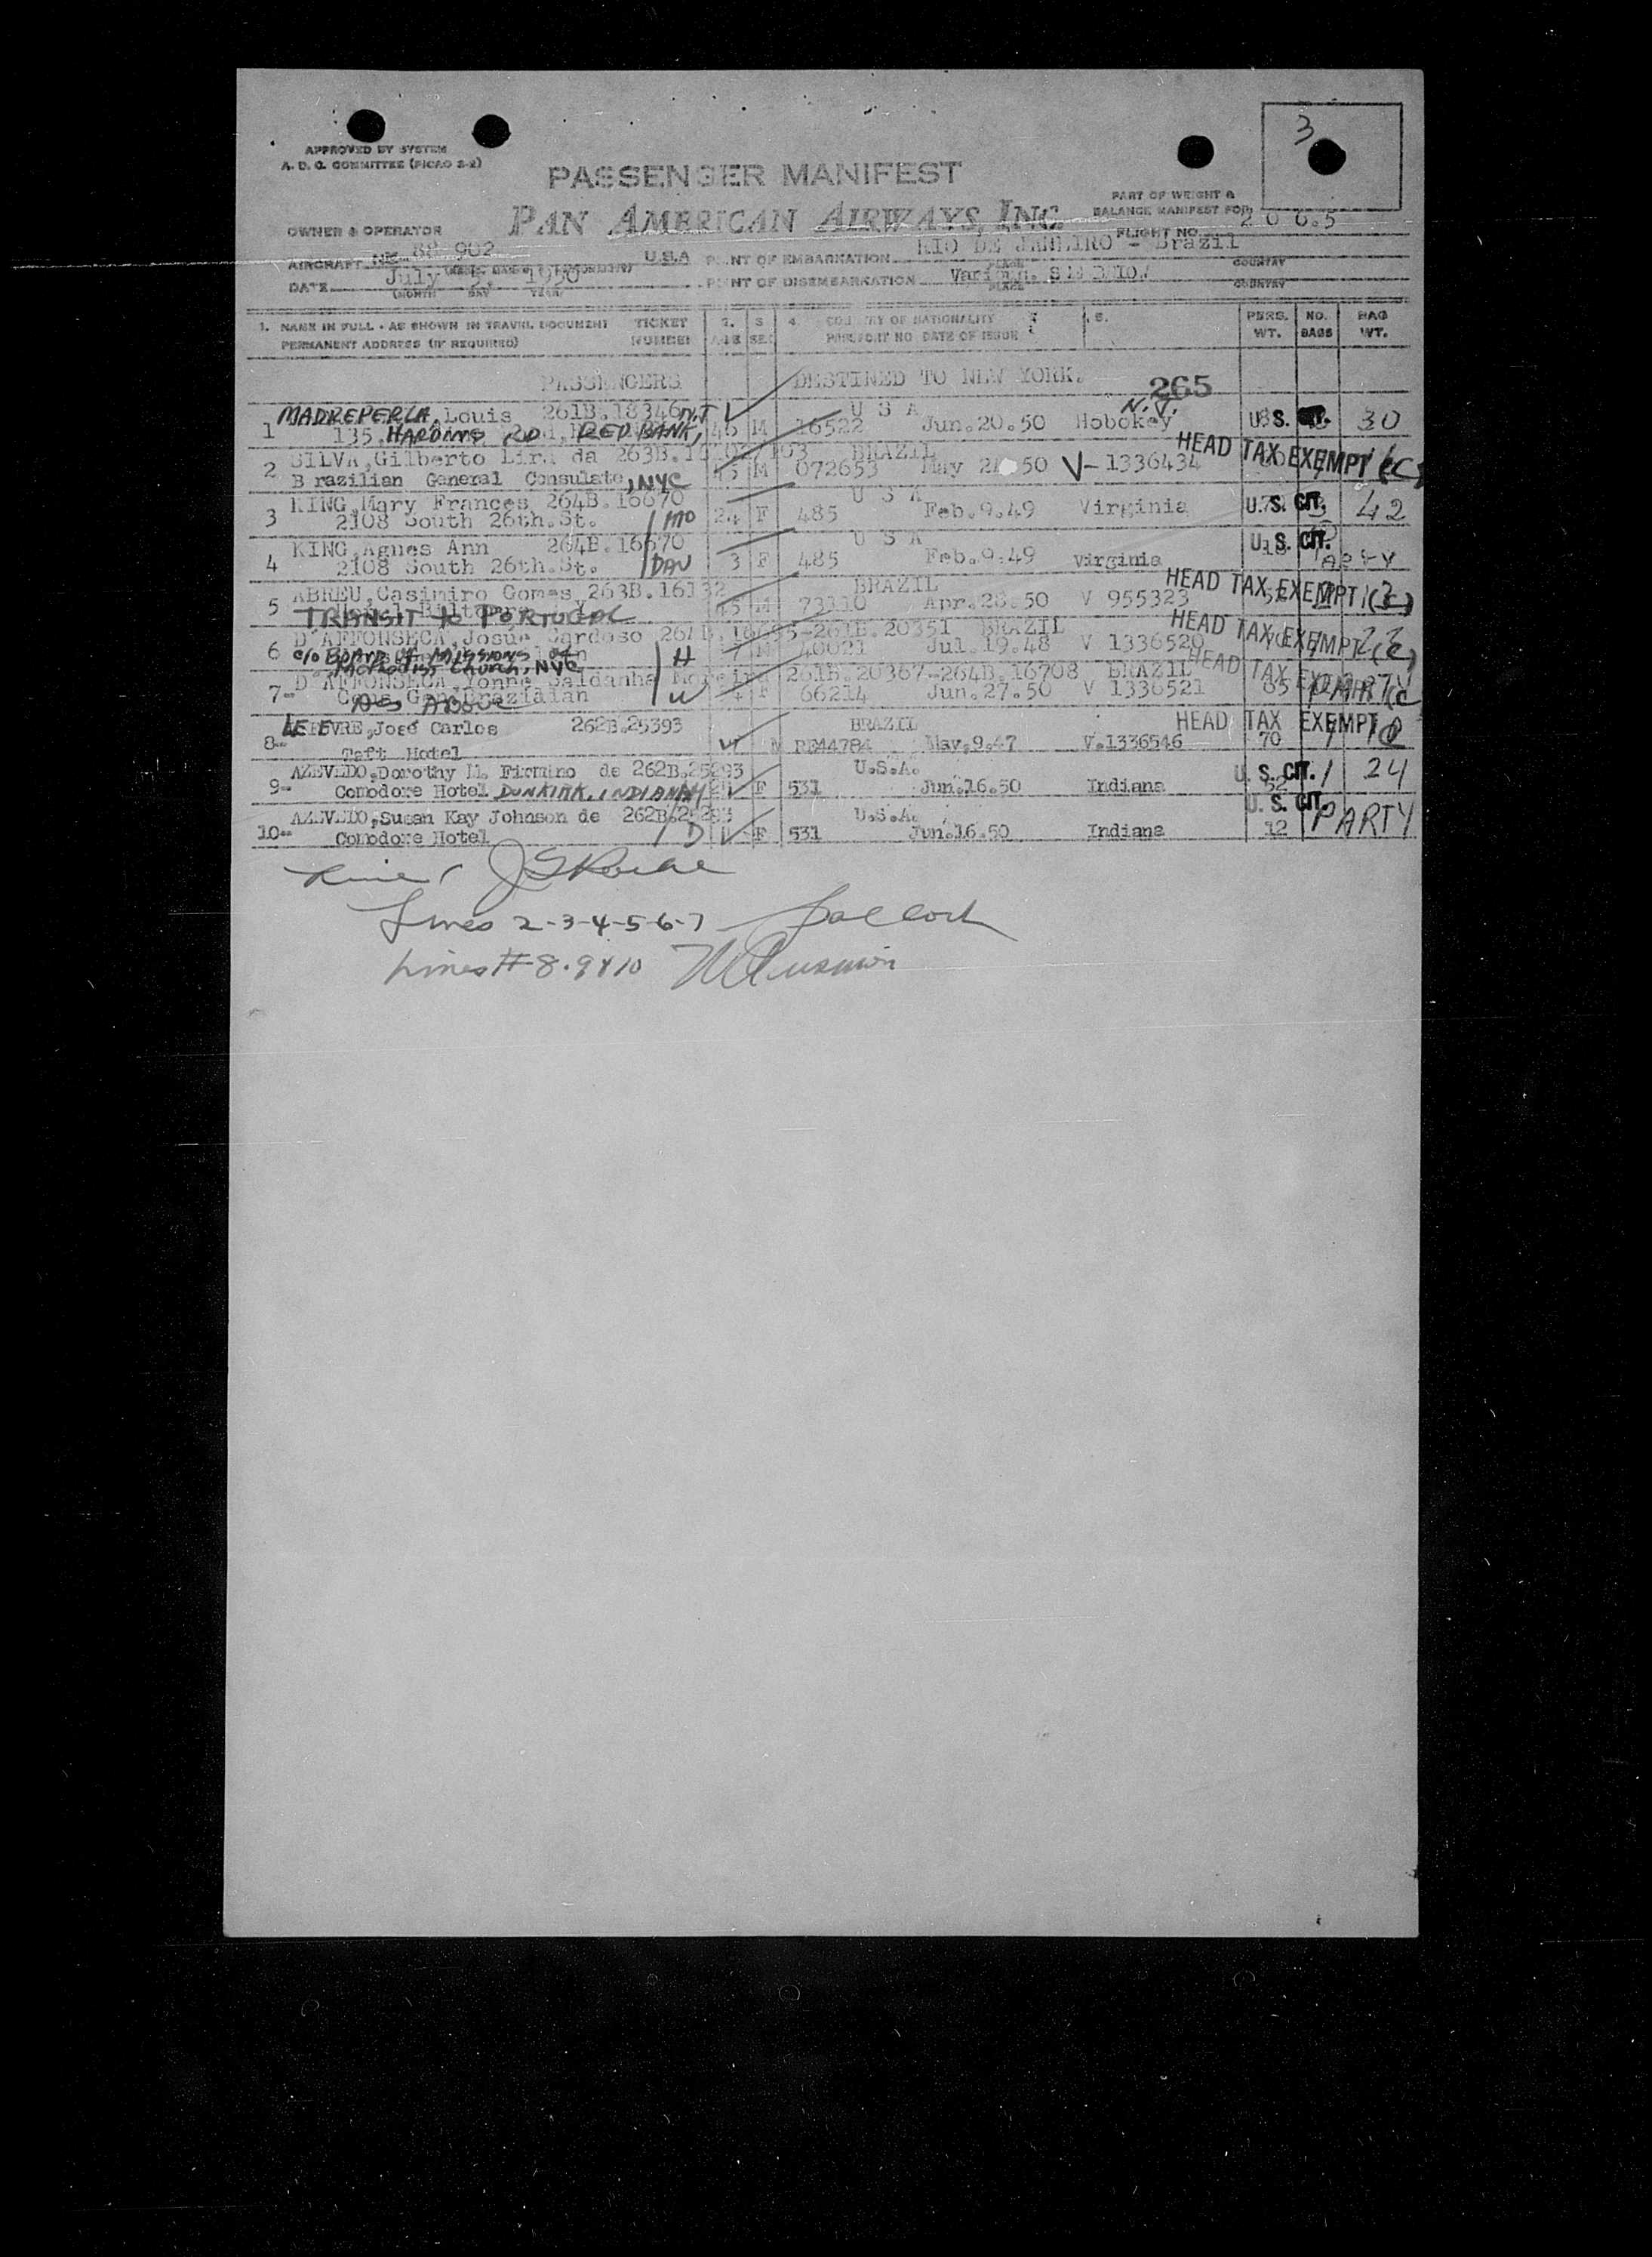 3
APPROVED BY SYSTEM
A. D. G. COMMITTEE (PICAO S-2)
PASSENGER MANIFEST
PART OF WEIGHT &
BALANCE MANIFEST FOR
OWNER & OPERATOR PAN AMERICAN AIRWAYS, INC. FLIGHT NO. 206.5
AIRCRAFT 88 902 U.S.A POINT OF EMBARKATION RIO DE JANEIRO - Brazil
PLACE COUNTRY
DATE July 3, 1950 POINT OF DISEMBARKATION
(MONTH DAY YEAR) PLACE COUNTRY
1. NAME IN FULL - AS SHOWN IN TRAVEL DOCUMENT TICKET 2. 3 4. COUNTRY OF NATIONALITY 5. PERS. NO. BAG
PERMANENT ADDRESS (IF REQUIRED) NUMBER AGE SEX PASSPORT NO. DATE OF ISSUE WT. BAGS WT.
PASSENGERS DESTINED TO NEW YORK. 265
MADREPERLA, Louis 261B.18346 N.J U S A N.J.
1 135, HARDING RD RED BANK, 46 M 16522 Jun.20.50 Hoboken U.S. CIT. 30
SILVA, Gilberto Lira da 263B. BRAZIL HEAD TAX EXEMPT (C)
2 B razilian General Consulate, NYC 45 M 072653 May 50 V-1336434
KING, Mary Frances 264B.16670 U S A
3 2108 South 26th.St. MO 24 F 485 Feb.9.49 Virginia U.S. CIT. 42
KING, Agnes Ann 264B.16670 U S A U.S. CIT.
4 2108 South 26th.St. DAU 3 F 485 Feb.9.49 Virginia PARTY
ABREU, Casimiro Gomes 263B.16132 BRAZIL HEAD TAX EXEMPT
5 TRANSIT to PORTUGAL 45 M 73110 Apr.28.50 V 955323
D'AFFONSECA, Josue Cardoso 261B.20351 BRAZIL HEAD TAX EXEMPT (C)
6 c/o BOARD OF MISSIONS of H M 40021 Jul.19.48 V 1336520 23
Methodist Church, NYC
D'AFFONSECA, Yonne Saldanha Moreira 261B.20367-264B.16708 BRAZIL HEAD TAX EXEMPT
7- Cons.Gen.Brazilian As Above W F 66214 Jun.27.50 V 1336521 65
LEFEVRE, José Carlos 262B.25393 BRAZIL HEAD TAX EXEMPT
8- Taft Hotel M RE44784 May.9.47 V.1336546 70
AZEVEDO, Dorothy M. Firmino de 262B.25293 U.S.A. U. S. CIT.
9- Comodore Hotel DUNKIRK, INDIANA F 531 Jun.16.50 Indiana 52 1 24
AZEVEDO, Susan Kay Johnson de 262B.25293 U.S.A. U. S. CIT.
10- Comodore Hotel D F 531 Jun.16.50 Indiana 12 PARTY
Line 1
Lines 2-3-4-5-6-7
Lines # 8.9 & 10